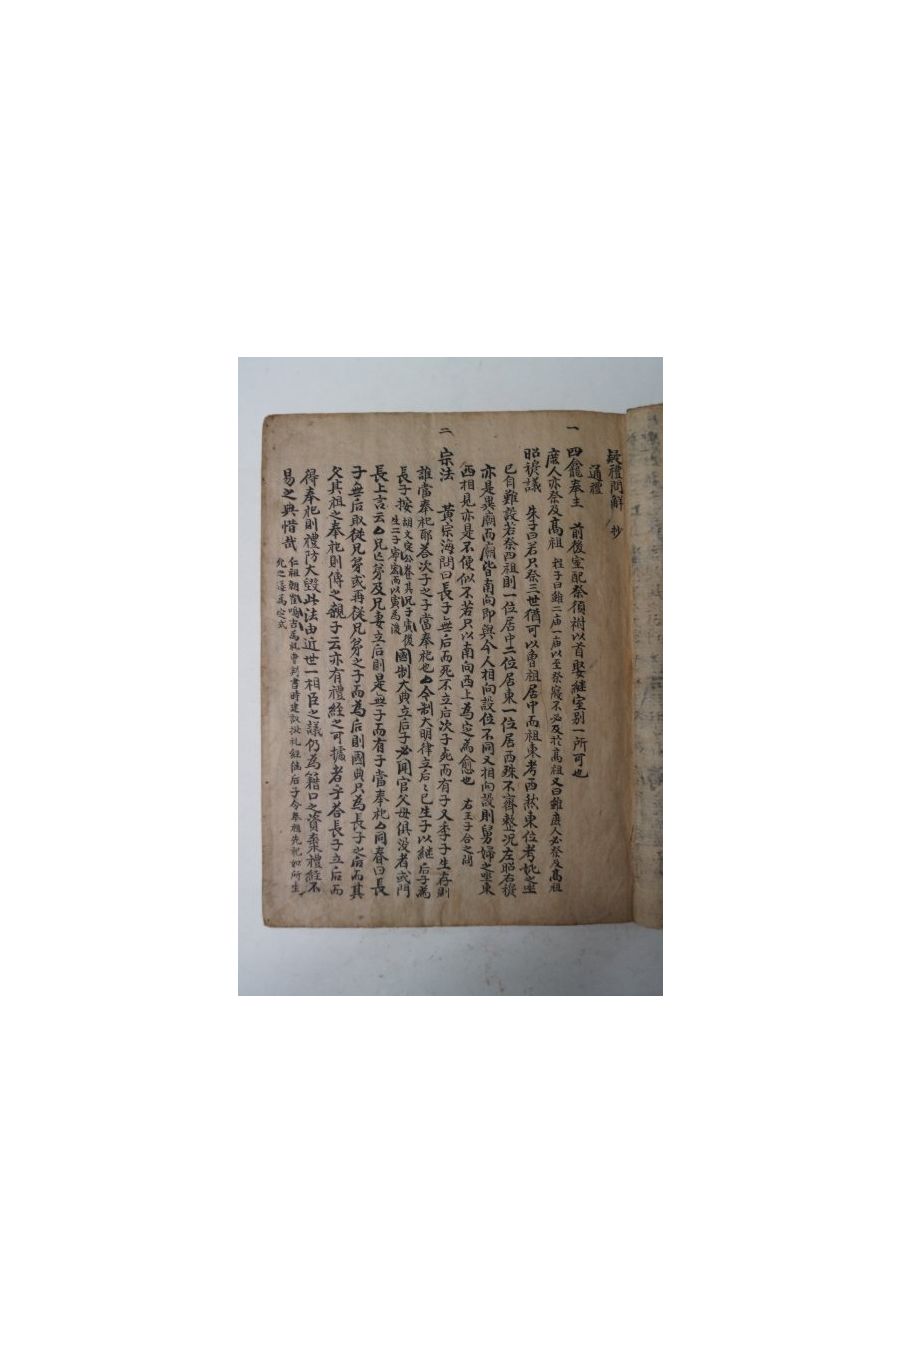 疑禮問解 抄
通禮
一
四龕奉主 前後室配祭須祔以首娶繼室别一所可也
庶人亦祭及高祖 程子曰雖二庙一庙以至祭寢不必及於高祖又曰雖庶人必祭及高祖
昭穆議 朱子曰若只祭三世猶可以曾祖居中而祖東考西然東位考妣之坐
已自難設若祭四祖則一位居中二位居東一位居西殊不齊整况左昭右穆
亦是異廟而廟皆南向即與今人相向設位不同又相向設則舅婦之坐東
西相見亦是不便似不若只以南向西上為定為愈也 右王子合之問
二
宗法 黃宗海問曰長子無后而死不立后次子死而有子又季子生存則
誰當奉祀耶荅次子之子當奉祀也 今制大明律立后〻已生子以継后子為
長子按 胡文定公養其兄子寅後生二子寧宏而以寅為後 國制大典立后子必聞官父母俱没者或門
長上言云 兄亡弟及兄妻立后則是無子而有子當奉祀 同春曰長
子無后取從兄弟或再從兄弟之子而為后則國典只為長子之后而其
父其祖之奉祀則傳之親子云亦有禮經之可據者乎荅長子立后而
得奉祀則禮防大毁此法由近世一相臣之議仍為籍口之資棄禮経不
易之典惜哉 仁祖朝崔鳴吉為礼曹判書時建议挍礼経継后子令奉祖先祀如所生
允之遂為定式